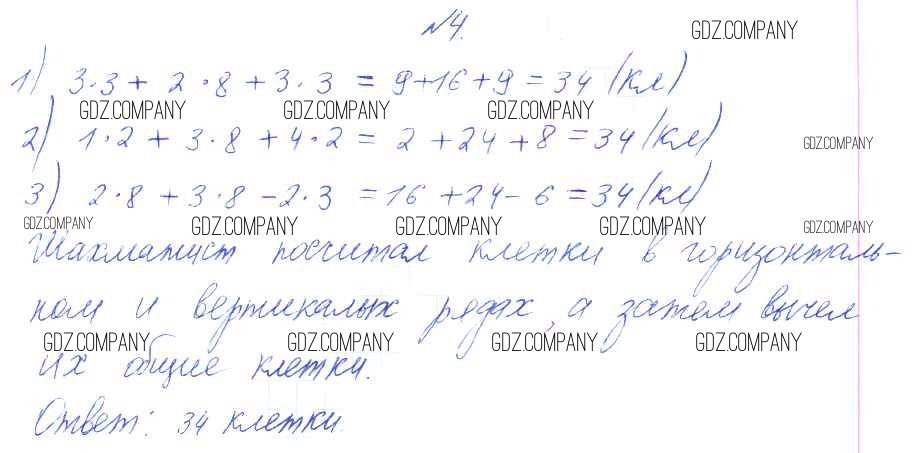 №4.
GDZ.COMPANY
1) 3·3 + 2·8 + 3·3 = 9+16+9 = 34 (кл)
GDZ.COMPANY GDZ.COMPANY GDZ.COMPANY
2) 1·2 + 3·8 + 4·2 = 2 + 24 + 8 = 34 (кл)
GDZ.COMPANY
3) 2·8 + 3·8 - 2·3 = 16 + 24 - 6 = 34 (кл)
GDZ.COMPANY GDZ.COMPANY GDZ.COMPANY GDZ.COMPANY GDZ.COMPANY
Шахматист посчитал клетки в горизонталь-
ном и вертикалых рядах, а затем вычел
GDZ.COMPANY GDZ.COMPANY GDZ.COMPANY GDZ.COMPANY
их общие клетки.
Ответ: 34 клетки.